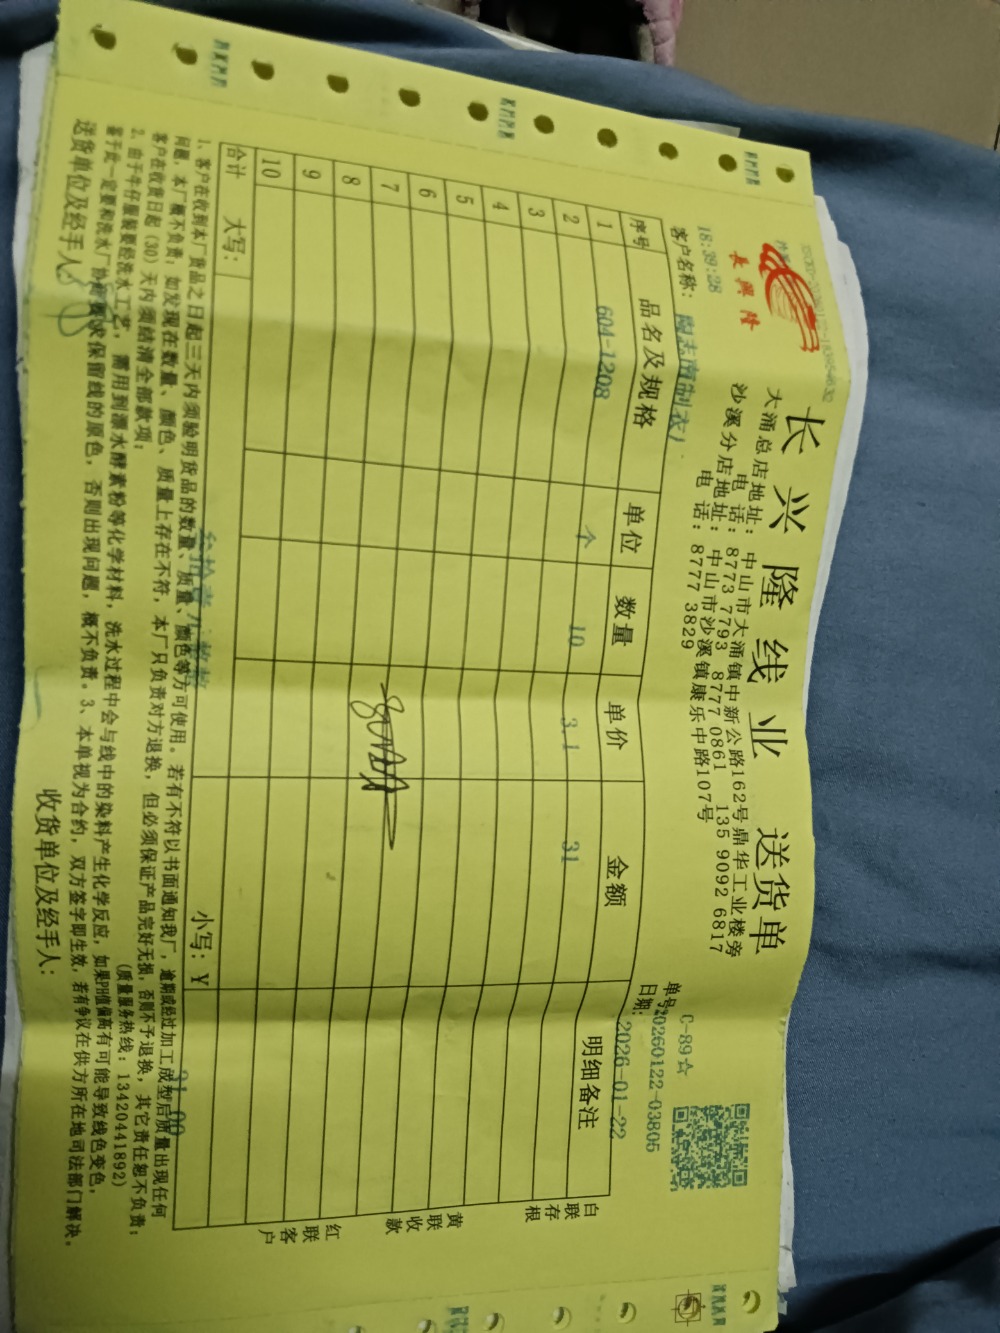 长兴隆线业 送货单
長興隆
大涌总店地址：中山市大涌镇中新公路162号鼎华工业楼旁
电 话：8773 7793 8777 0861 135 9092 6817
沙溪分店地址：中山市沙溪镇康乐中路107号
电 话：8777 3829
C-89☆
单号：20260122-03805
日期：2026-01-22
18:39:28
客户名称：陶志南制衣厂
序号 品名及规格 单位 数量 单价 金额 明细备注
1 604-1208 个 10 3.1 31
2
3
4
5
6
7
8
9
10
合计 大写： 小写：¥ 31.00
白联存根
黄联收款
红联客户
1、客户在收到本厂货品之日起三天内须验明货品的数量、质量、颜色等方可使用。若有不符以书面通知我厂，逾期或经过加工成型后质量出现任何
问题，本厂概不负责；如发现在数量、颜色、质量上存在不符，本厂只负责对方退换，但必须保证产品完好无损，否则不予退换，其它责任恕不负责；
客户在收货日起（30）天内须结清全部款项；
(质量服务热线：13420441892)
2、由于牛仔服装要经洗水工艺，需用到漂水酵素粉等化学材料，洗水过程中会与线中的染料产生化学反应，如果PH值偏高有可能导致线色变色，
鉴于此一定要和洗水厂协商要求保留线的原色，否则出现问题，概不负责。3、本单视为合约，双方签字即生效，若有争议在供方所在地司法部门解决。
送货单位及经手人： 收货单位及经手人：